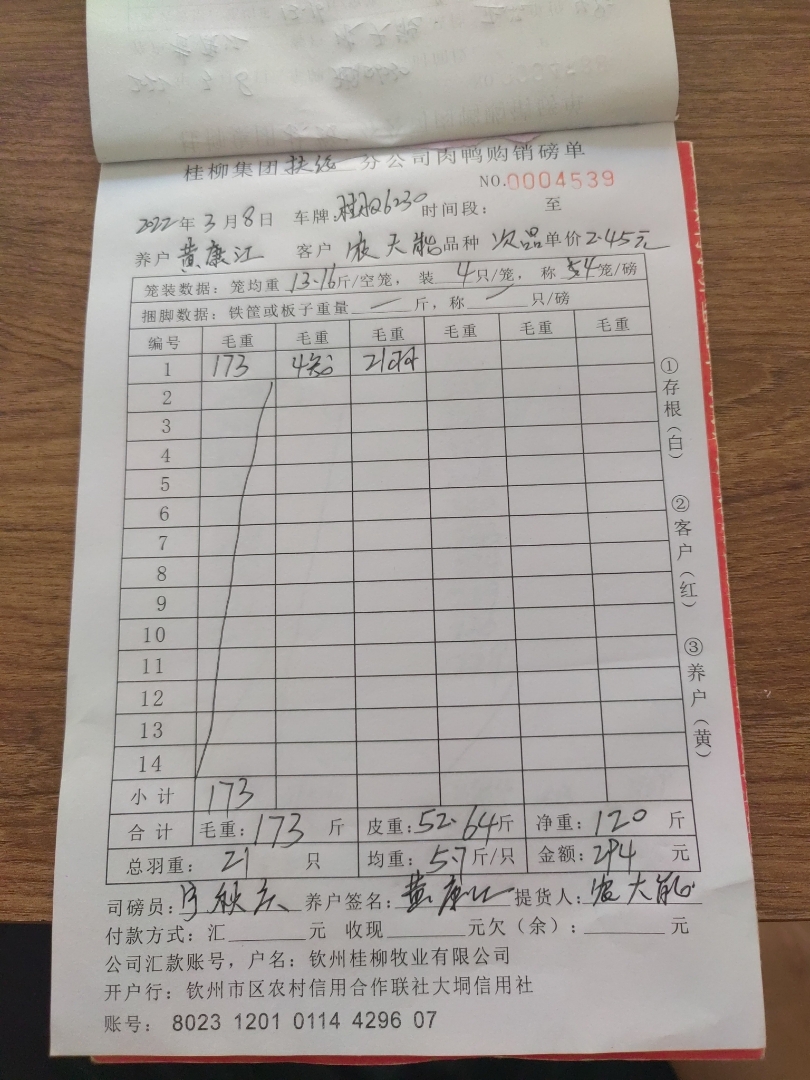 桂柳集团扶绥分公司肉鸭购销磅单
NO.0004539
2022年3月8日 车牌: 6230 时间段: 至
养户 黄康江 客户 农天能 品种 次品 单价 2.45元
笼装数据: 笼均重 13.16斤/空笼, 装 4只/笼, 称 4笼/磅
捆脚数据: 铁筐或板子重量 — 斤, 称 — 只/磅
编号 毛重 毛重 毛重 毛重 毛重 毛重
1 173 4笼 21羽
2
3
4
5
6
7
8
9
10
11
12
13
14
小计 173
合计 毛重: 173 斤 皮重: 52.64斤 净重: 120 斤
总羽重: 21 只 均重: 5.7斤/只 金额: 294 元
司磅员: 养户签名: 黄康江 提货人: 农天能
付款方式: 汇 元 收现 元欠(余): 元
公司汇款账号, 户名: 钦州桂柳牧业有限公司
开户行: 钦州市区农村信用合作联社大垌信用社
账号: 8023 1201 0114 4296 07
①存根(白) ②客户(红) ③养户(黄)